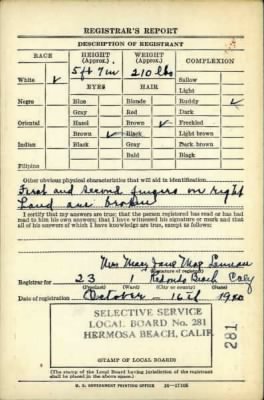 REGISTRAR'S REPORT
DESCRIPTION OF REGISTRANT
RACE
HEIGHT
(Approx.)
WEIGHT
(Approx.)
COMPLEXION
5 ft 7 in
210 lbs
White ✓
Sallow
EYES
HAIR
Light
Negro
Blue
Blonde
Ruddy ✓
Gray
Red
Dark
Oriental
Hazel
Brown ✓
Freckled
Brown ✓
Black
Light brown
Indian
Black
Gray
Dark brown
Bald
Black
Filipino
Other obvious physical characteristics that will aid in identification
First and second fingers on right
hand are broken
I certify that my answers are true; that the person registered has read or has had
read to him his own answers; that I have witnessed his signature or mark and that
all of his answers of which I have knowledge are true, except as follows:
Mrs Mary Jane
(Signature of registrar)
Registrar for 23 1 Redondo Beach Calif
(Precinct) (Ward) (City or county) (State)
Date of registration October - 16th 1940
SELECTIVE SERVICE
LOCAL BOARD No. 281
HERMOSA BEACH, CALIF.
281
(STAMP OF LOCAL BOARD)
(The stamp of the Local Board having jurisdiction of the registrant
shall be placed in the above space.)
U. S. GOVERNMENT PRINTING OFFICE 16-17105